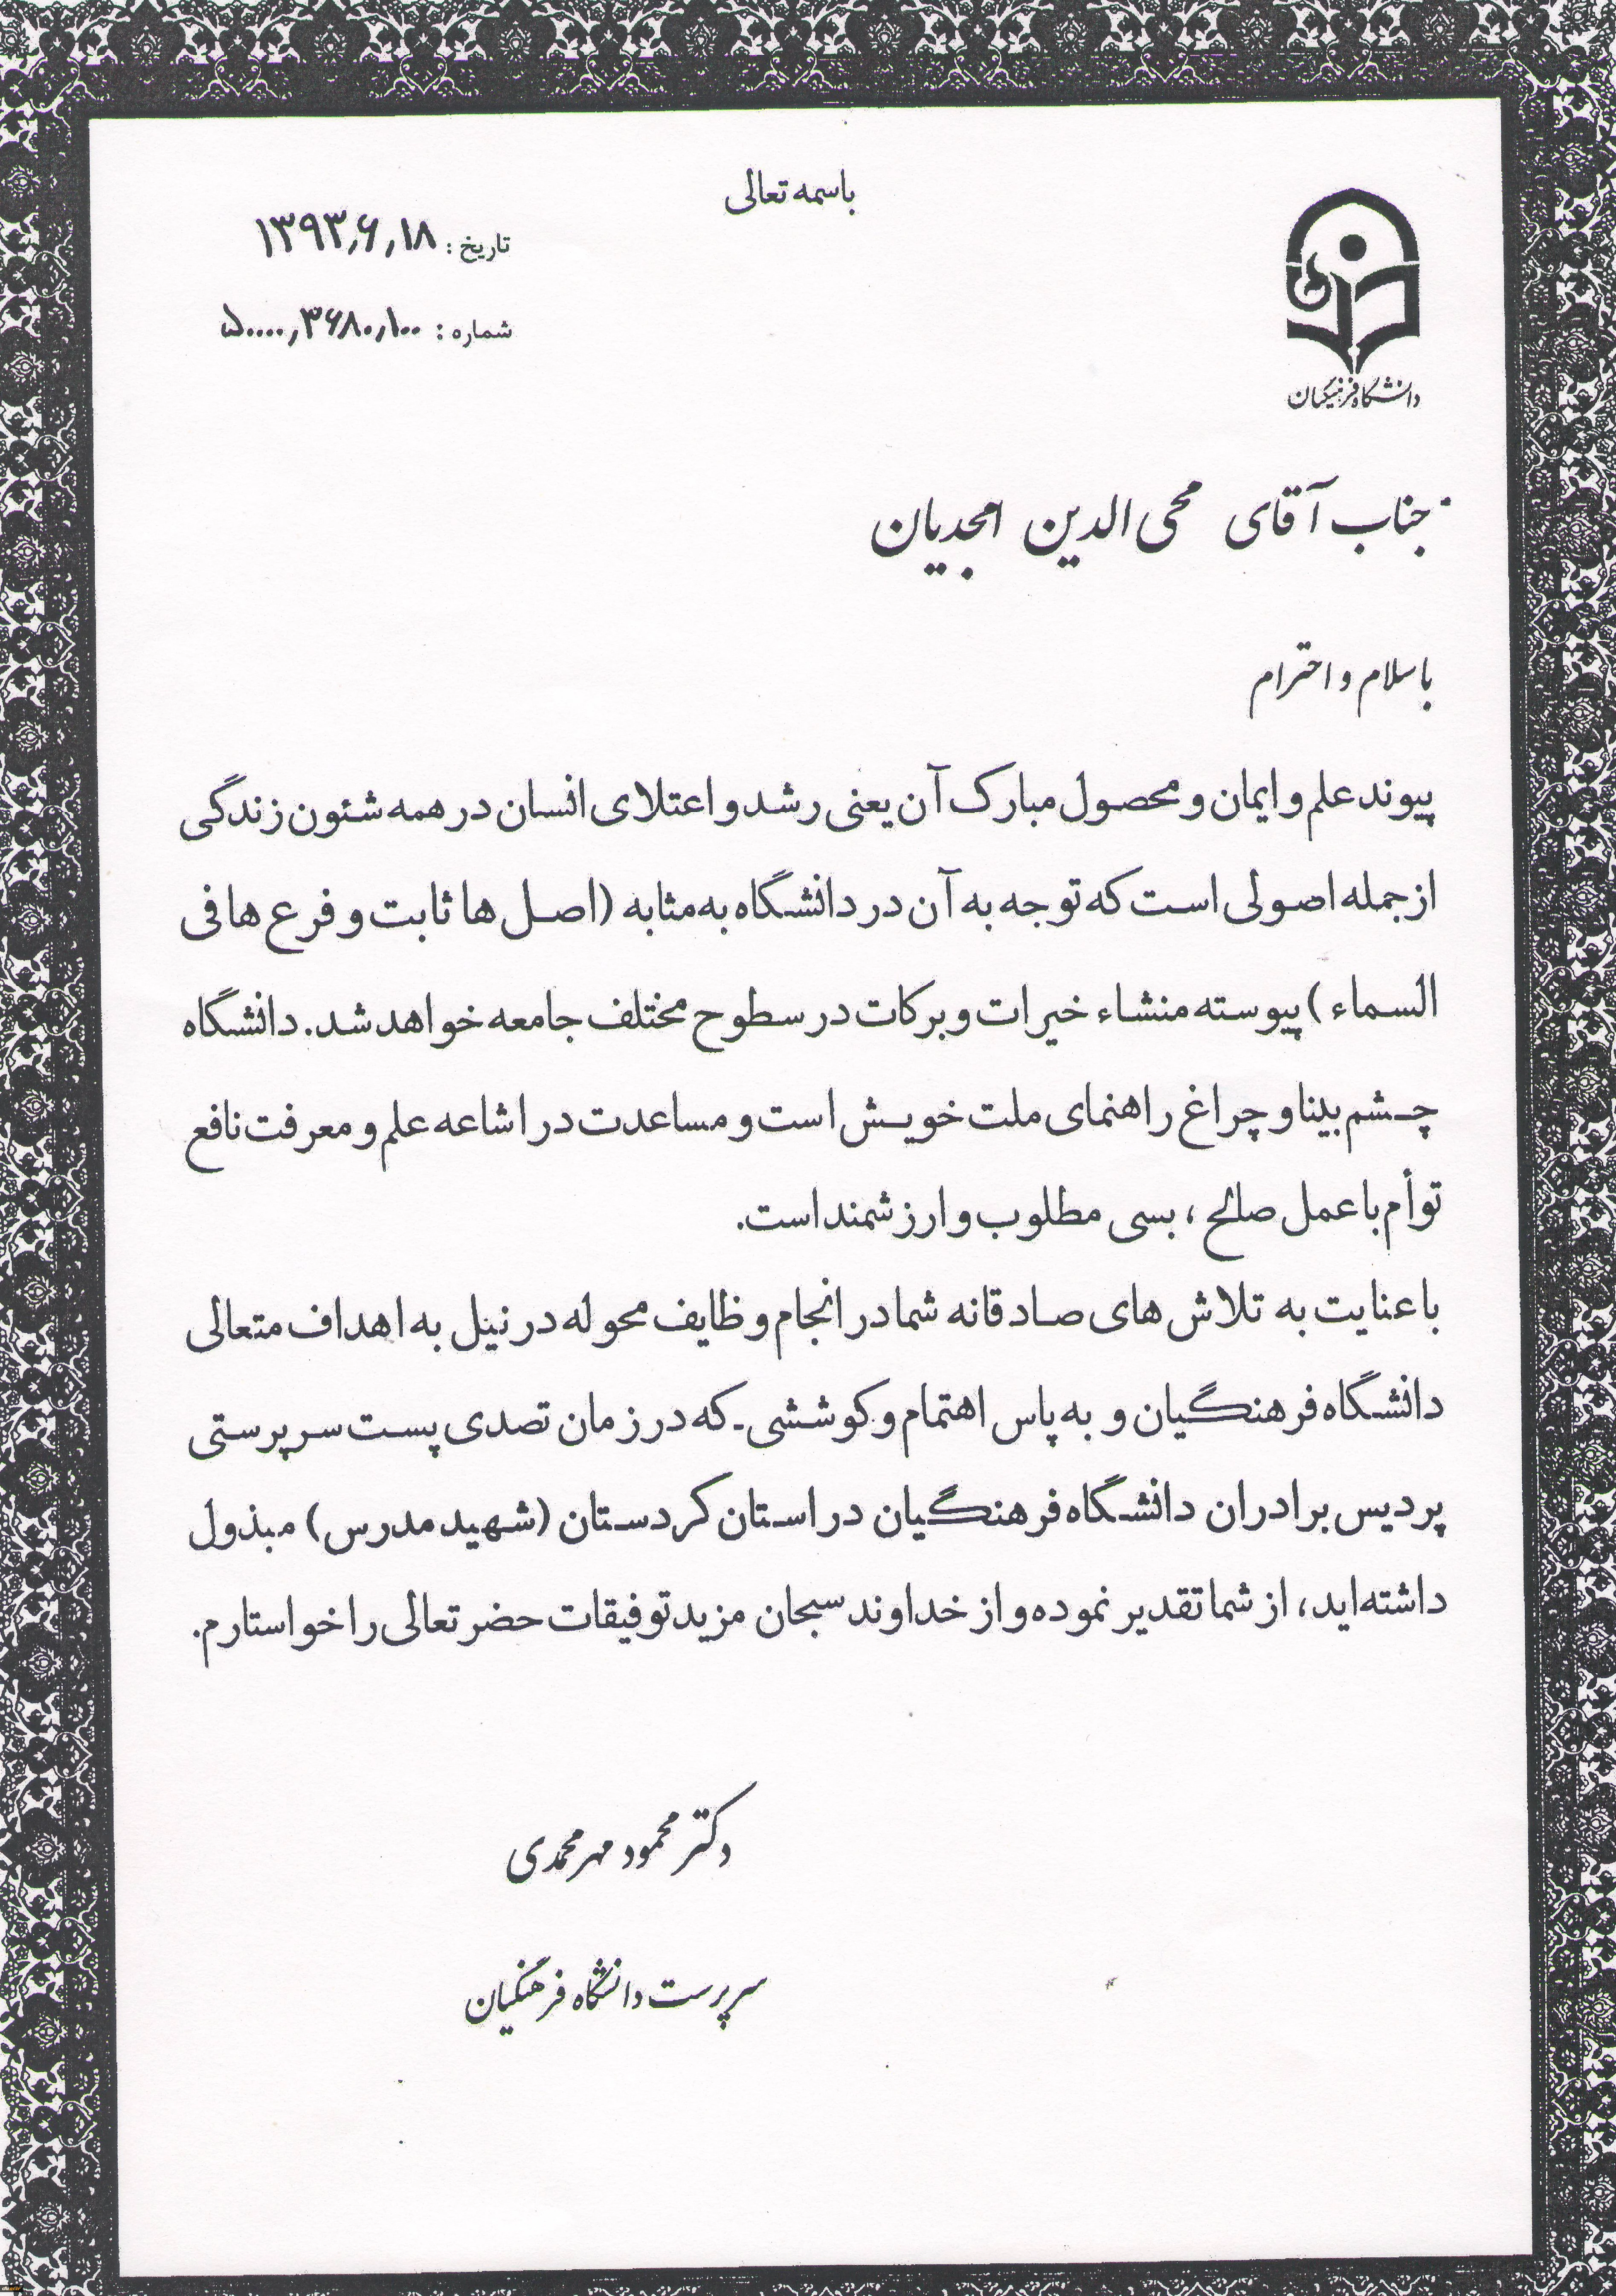 باسمه تعالی
تاریخ : ۱۳۹۳٫۶٫۱۸
شماره : ۵۰۰۰۰٫۳۶۸۰٫۱۰۰
دانشگاه فرهنگیان
جناب آقای محی الدین امجدیان
با سلام و احترام
پیوند علم و ایمان و محصول مبارک آن یعنی رشد و اعتلای انسان در همه شئون زندگی
از جمله اصولی است که توجه به آن در دانشگاه به مثابه (اصل ها ثابت و فرع ها فی
السماء ) پیوسته منشاء خیرات و برکات در سطوح مختلف جامعه خواهد شد. دانشگاه
چشم بینا و چراغ راهنمای ملت خویش است و مساعدت در اشاعه علم و معرفت نافع
توأم با عمل صالح ، بسی مطلوب و ارزشمند است.
با عنایت به تلاش های صادقانه شما در انجام وظایف محوله در نیل به اهداف متعالی
دانشگاه فرهنگیان و به پاس اهتمام و کوششی که در زمان تصدی پست سرپرستی
پردیس برادران دانشگاه فرهنگیان در استان کردستان (شهید مدرس) مبذول
داشته اید، از شما تقدیر نموده و از خداوند سبحان مزید توفیقات حضرتعالی را خواستارم.
دکتر محمود مهرمحمدی
سرپرست دانشگاه فرهنگیان